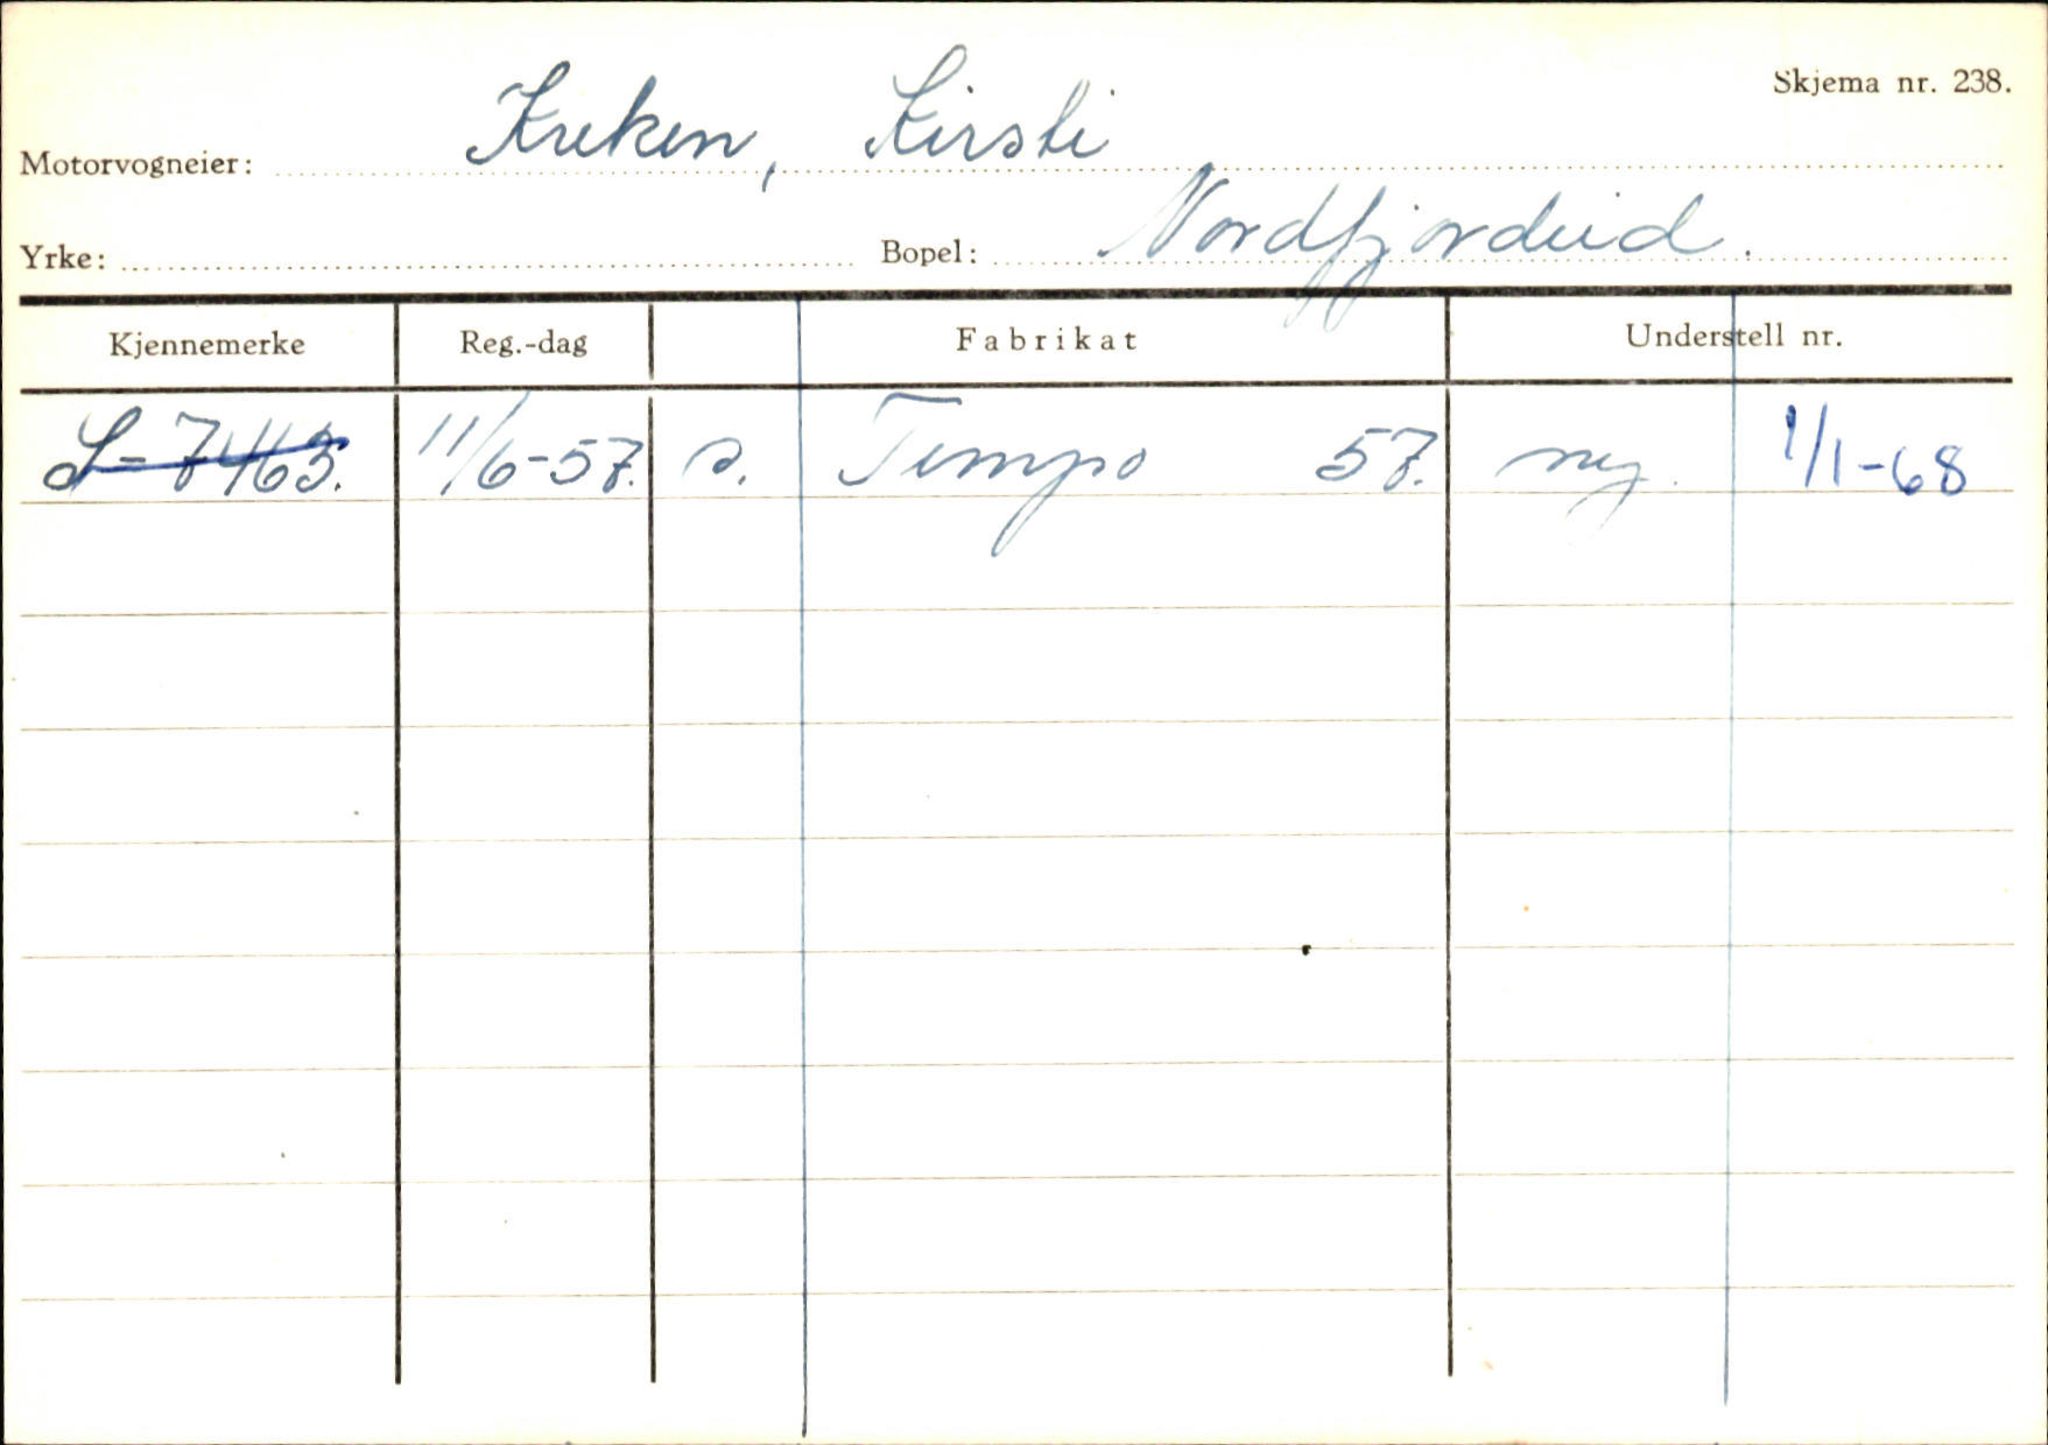 Skjema nr. 238.
Motorvogneier: Kreken, Kirsti
Yrke: Bopel: Nordfjordeid.
Kjennemerke Reg.-dag Fabrikat Understell nr.
S-7463. 11/6-57. s. Tempo 57. ny. 1/1-68